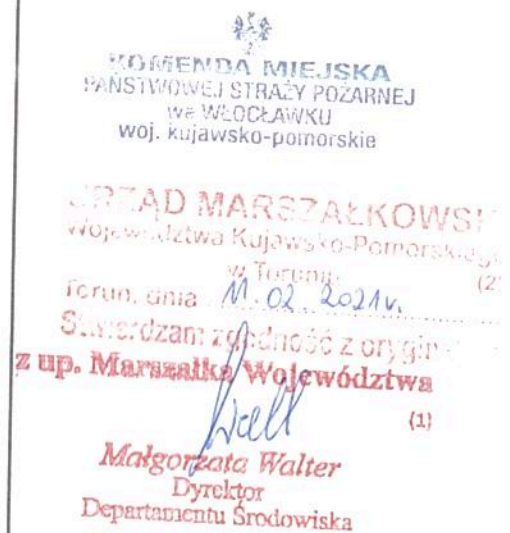 KOMENDA MIEJSKA
PAŃSTWOWEJ STRAŻY POŻARNEJ
we WŁOCŁAWKU
woj. kujawsko-pomorskie
URZĄD MARSZAŁKOWSK
Województwa Kujawsko-Pomorskiego
w Toruniu
(2)
Toruń, dnia 11.02.2021r.
Stwierdzam zgodność z orygin
z up. Marszałka Województwa
(1)
Małgorzata Walter
Dyrektor
Departamentu Środowiska